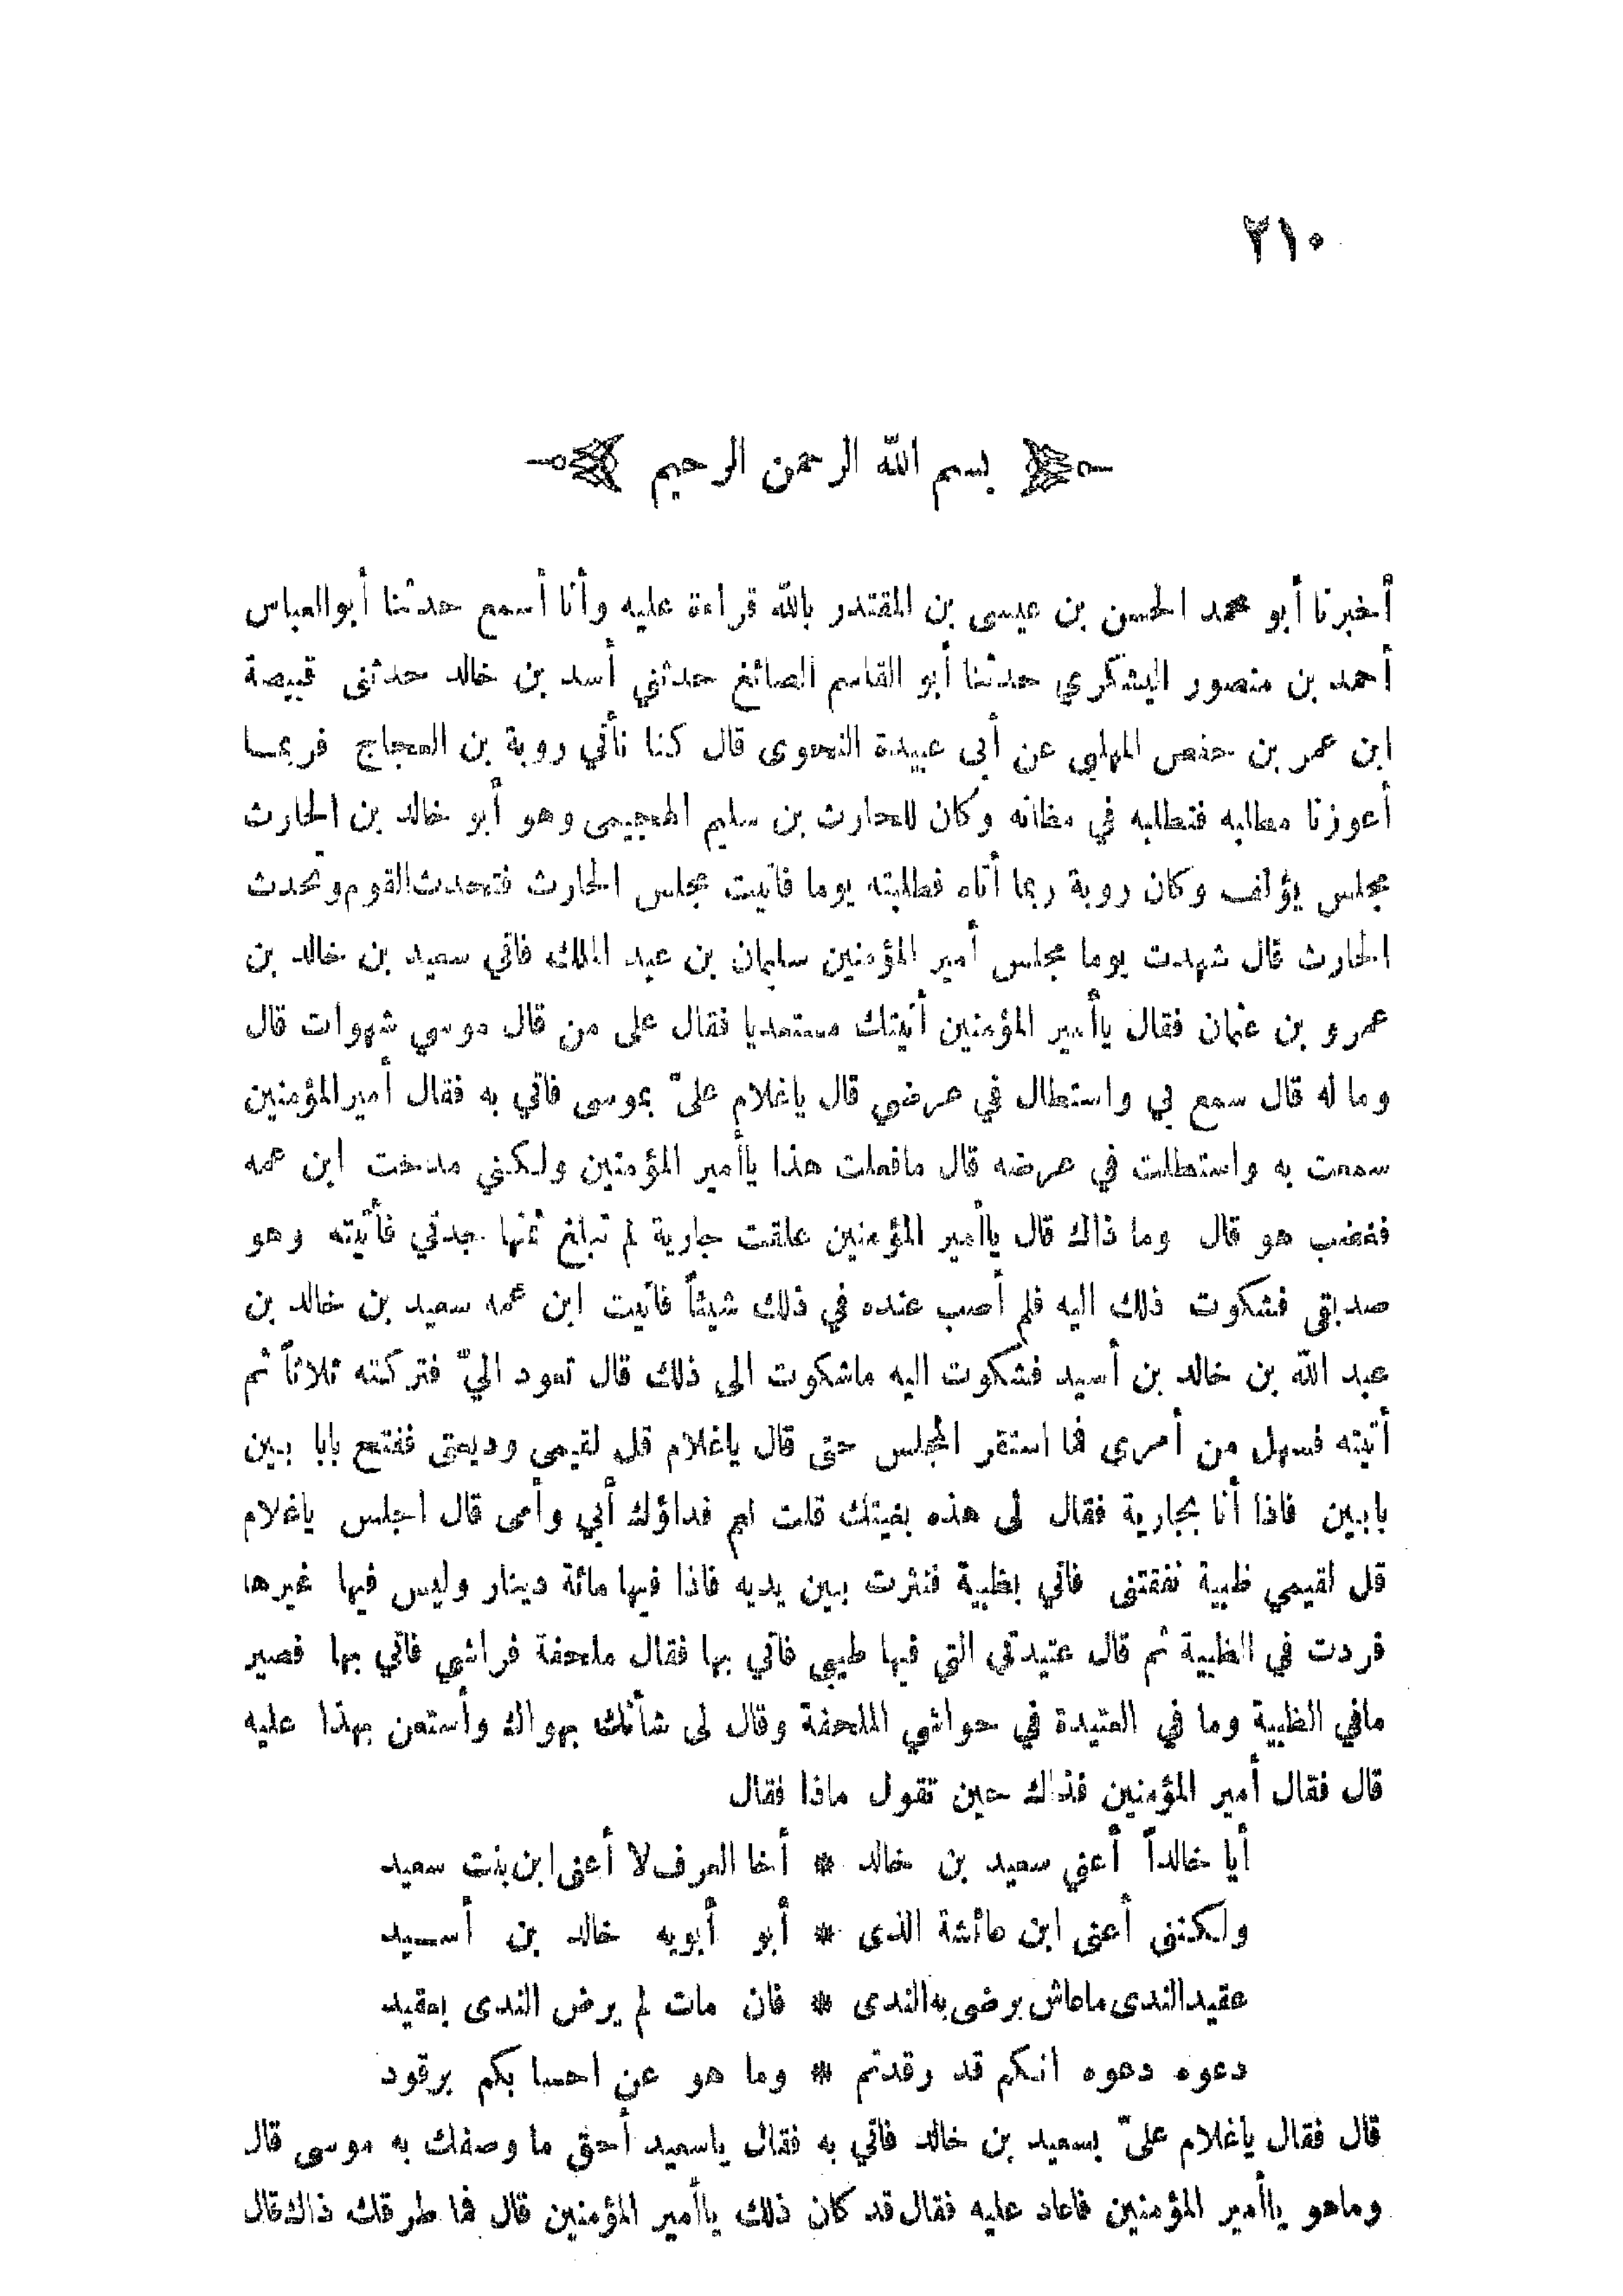 ٢١٠
بسم الله الرحمن الرحيم
أخبرنا أبو محمد الحسن بن عيسى بن المقتدر بالله قراءة عليه وأنا أسمع حدثنا أبو العباس
أحمد بن منصور اليشكري حدثنا أبو القاسم الصائغ حدثني أسد بن خالد حدثنى قبيصة
ابن عمر بن حفص المهلبي عن أبى عبيدة النحوى قال كنا نأتي روبة بن العجاج فربمـا
أعوزنا مطلبه فنطلبه في مظانه وكان للحارث بن سليم الهجيمى وهو أبو خالد بن الحارث
مجلس يؤلف وكان روبة ربما أتاه فطلبته يوما فأتيت مجلس الحارث فتحدث القوم وتحدث
الحارث قال شهدت يوما مجلس أمير المؤمنين سليمان بن عبد الملك فأتي سعيد بن خالد بن
عمرو بن عثمان فقال ياأمير المؤمنين أتيتك مستعديا فقال على من قال موسي شهوات قال
وما له قال سمع بي واستطال في عرضي قال ياغلام علىّ بموسى فأتي به فقال أمير المؤمنين
سمعت به واستطلت في عرضه قال مافعلت هذا ياأمير المؤمنين ولكني مدحت ابن عمه
فغضب هو قال وما ذاك قال ياأمير المؤمنين علقت جارية لم تبلغ ثمنها جدتي فأتيته وهو
صديقى فشكوت ذلك اليه فلم أصب عنده في ذلك شيئاً فأتيت ابن عمه سعيد بن خالد بن
عبد الله بن خالد بن أسيد فشكوت اليه ماشكوت الى ذلك قال تعود اليّ فتركته ثلاثاً ثم
أتيته فسهل من أمرى فما استقر المجلس حتى قال ياغلام قل لقيمي وديعتى ففتح بابا بين
بابين فاذا أنا بجارية فقال لى هذه بغيتك قلت نعم فداؤك أبي وأمى قال اجلس ياغلام
قل لقيمي ظبية نفقتنى فأتي بظبية فنثرت بين يديه فاذا فيها مائة دينار وليس فيها غيرها
فردت في الظبية ثم قال عتيدتي التي فيها طيبي فأتي بها فقال ملحفة فراشي فأتي بها فصير
مافي الظبية وما في العتيدة في حواشي الملحفة وقال لى شأنك بهواك وأستعن بهذا عليه
قال فقال أمير المؤمنين فذاك حين تقول ماذا فقال
أيا خالداً أعني سعيد بن خالد * أخا العرف لا أعنى ابن بنت سعيد
ولكننى أعنى ابن عائشة الذى * أبو أبويه خالد بن أسـيد
عقيد الندى ماعاش يرضى به الندى * فان مات لم يرض الندى بعقيد
دعوه دعوه انكم قد رقدتم * وما هو عن احسابكم برقود
قال فقال ياغلام علىّ بسعيد بن خالد فأتي به فقال ياسعيد أحق ما وصفك به موسى قال
وماهو ياأمير المؤمنين فاعاد عليه فقال قد كان ذلك ياأمير المؤمنين قال فما طرقك ذاك قال